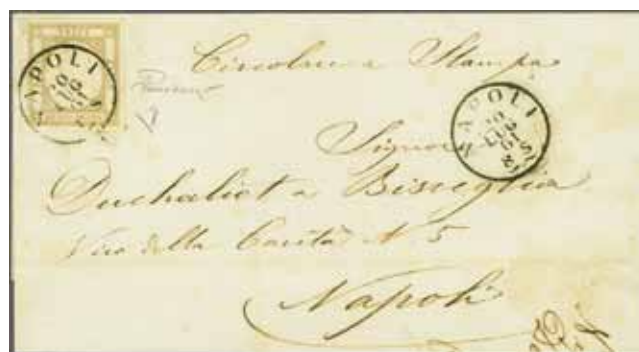 NAPOLI
20 LUG
Circolare a Stampa
NAPOLI
20
LUG
61
8 S
Signor
Duchaliot a Bisceglia
Vico della Carità N. 5
Napoli